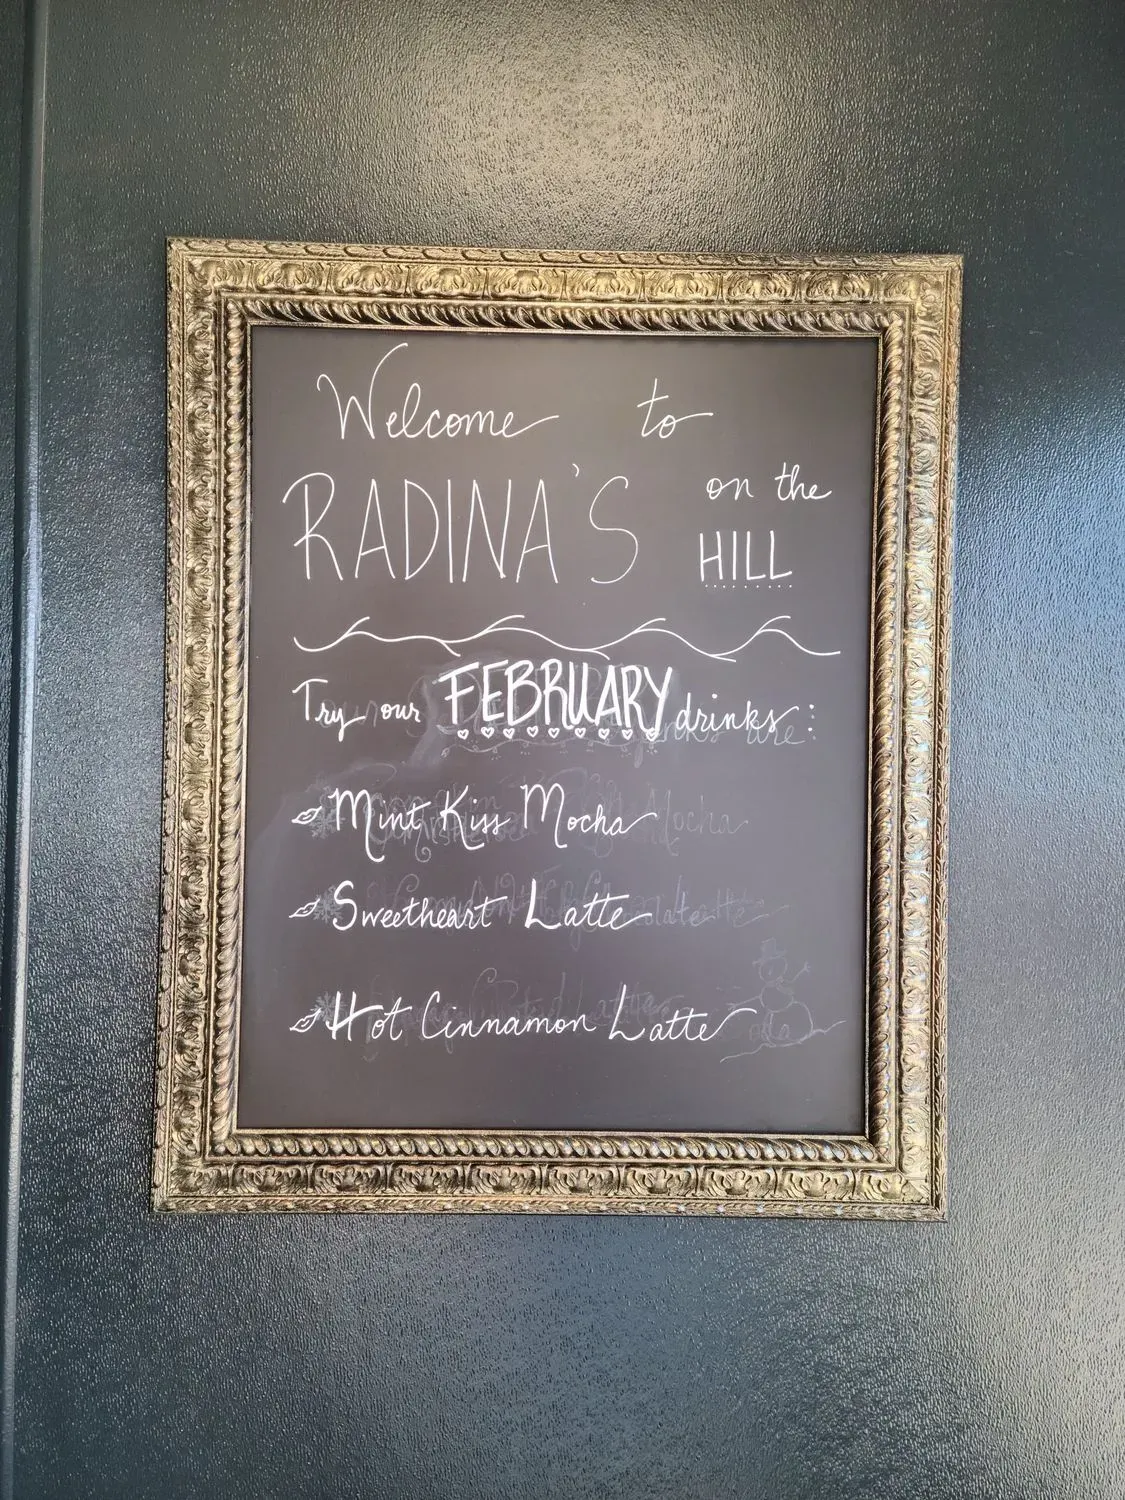 Welcome to
RADINA'S on the
HILL
Try our FEBRUARY drinks:
Mint Kiss Mocha
Sweetheart Latte
Hot Cinnamon Latte